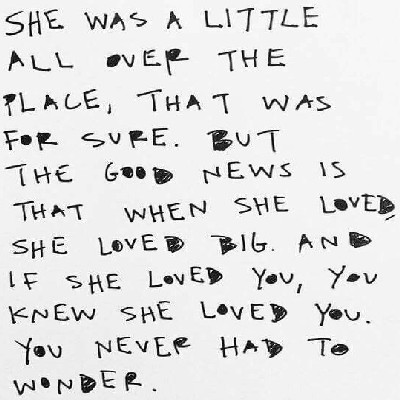 SHE WAS A LITTLE
ALL OVER THE
PLACE, THAT WAS
FOR SURE. BUT
THE GOOD NEWS IS
THAT WHEN SHE LOVED,
SHE LOVED BIG. AND
IF SHE LOVED YOU, YOU
KNEW SHE LOVED YOU.
YOU NEVER HAD TO
WONDER.